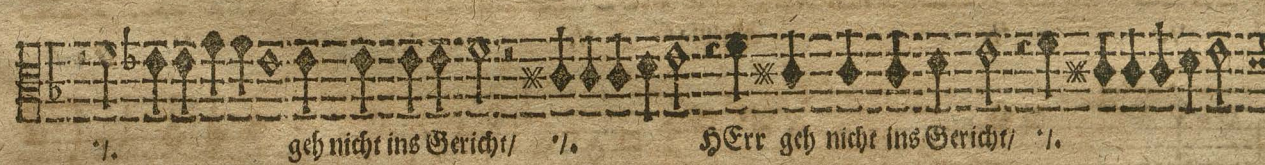 ·/. geh nicht ins Gericht/ ·/. HErr geh nicht ins Gericht/ ·/.